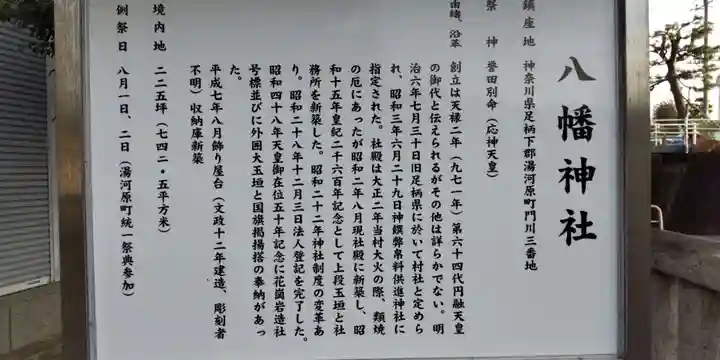 八幡神社
鎮座地 神奈川県足柄下郡湯河原町門川三番地
祭神 誉田別命（応神天皇）
由緒、沿革 創立は天禄二年（九七一年）第六十四代円融天皇
の御代と伝えられるがその他は詳らかでない。明
治六年七月三十日旧足柄県に於いて村社と定めら
れ、昭和三年六月二十九日神饌幣帛料供進神社に
指定された。社殿は大正二年当村大火の際、類焼
の厄にあったが昭和二年八月現社殿に新築し、昭
和十五年皇紀二千六百年記念として上段玉垣と社
務所を新築した。昭和二十二年神社制度の変革あ
り。昭和二十八年十二月三日法人登記を完了した。
昭和四十八年天皇御在位五十年記念に花崗岩造社
号標並びに外囲大玉垣と国旗掲揚搭の奉納があっ
た。
平成七年八月飾り屋台（文政十二年建造、彫刻者
不明）収納庫新築
境内地 二二五坪（七四二・五平方米）
例祭日 八月一日、二日（湯河原町統一祭典参加）